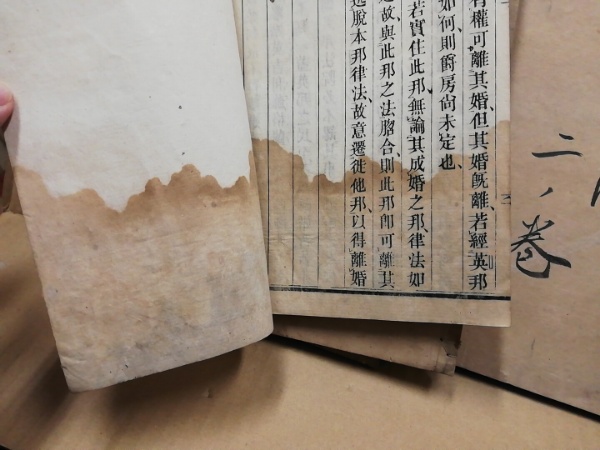 二ノ巻
有權可離其婚、但其婚旣離、若經英邦
如何、則爵房尚未定也、
若實住此邦、無論其成婚之邦、律法如
故與此邦之法脗合、則此邦卽可離其
脫本邦律法、故意遷徙他邦、以得離婚